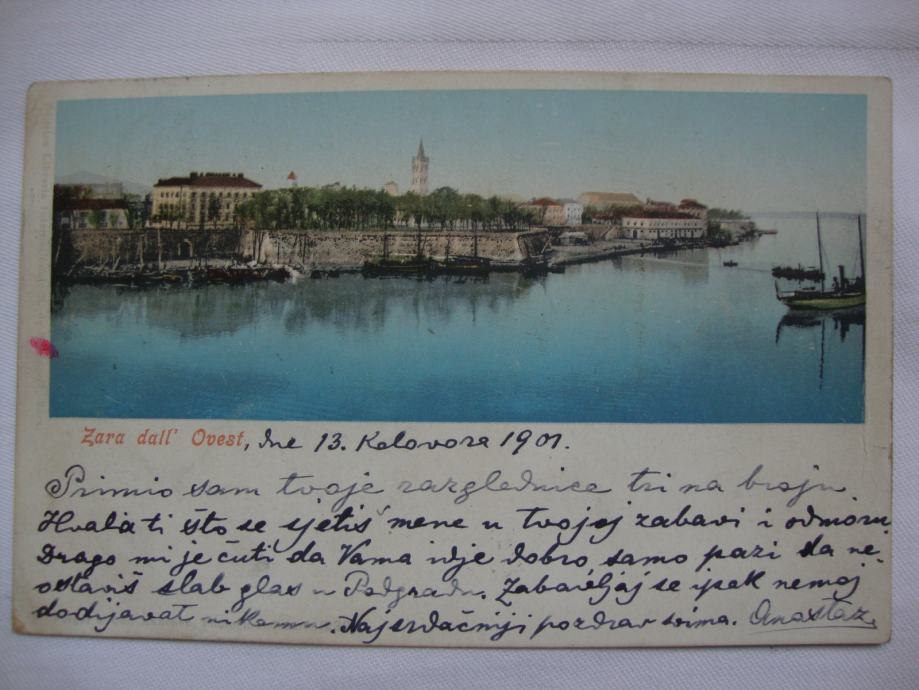 Zara dall' Ovest, dne 13. Kolovoza 1901.
Primio sam tvoje razglednice tri na broju.
Hvala ti što se sjetiš mene u tvojoj zabavi i odmoru
Drago mi je čuti da Vama idje dobro, samo pazi da ne
ostaviš slab glas u Podgradu. Zabavljaj se ipak nemoj
dodijavat nikomu. Najsrdačniji pozdrav svima. Anastaz.